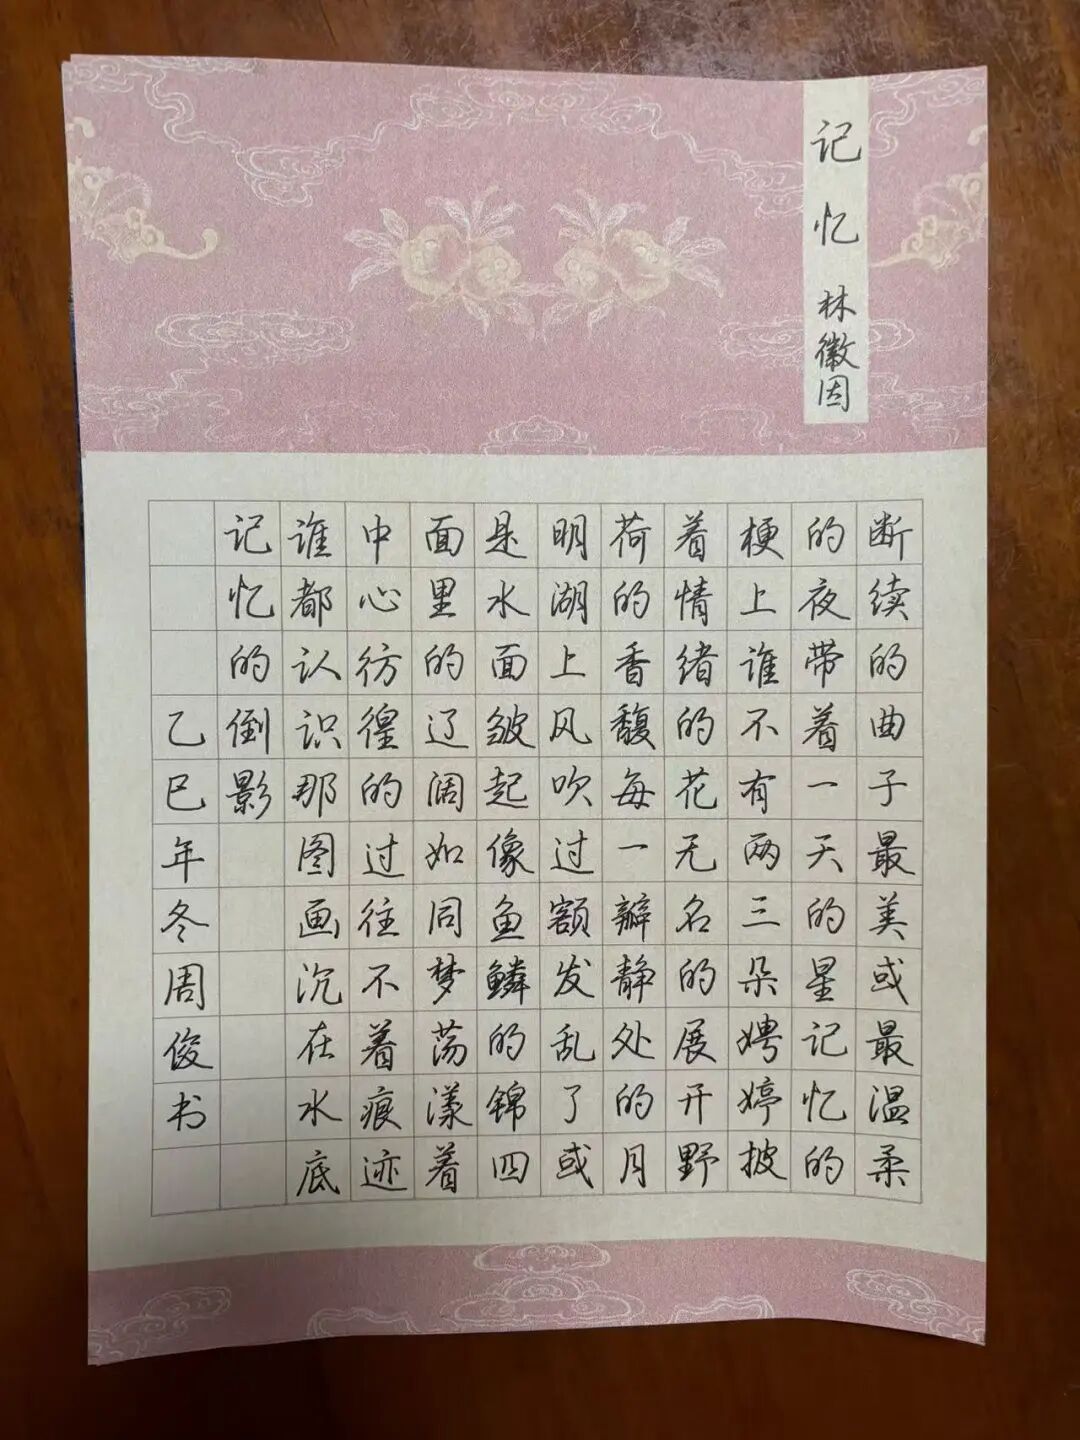 记忆 林徽因
断续的曲子最美或最温柔
的夜带着一天的星记忆的
梗上谁不有两三朵娉婷披
着情绪的花无名的展开野
荷的香馥每一瓣静处的月
明湖上风吹过额发乱了或
是水面皱起像鱼鳞的锦四
面里的辽阔如同梦荡漾着
中心彷徨的过往不着痕迹
谁都认识那图画沉在水底
记忆的倒影
乙巳年冬周俊书